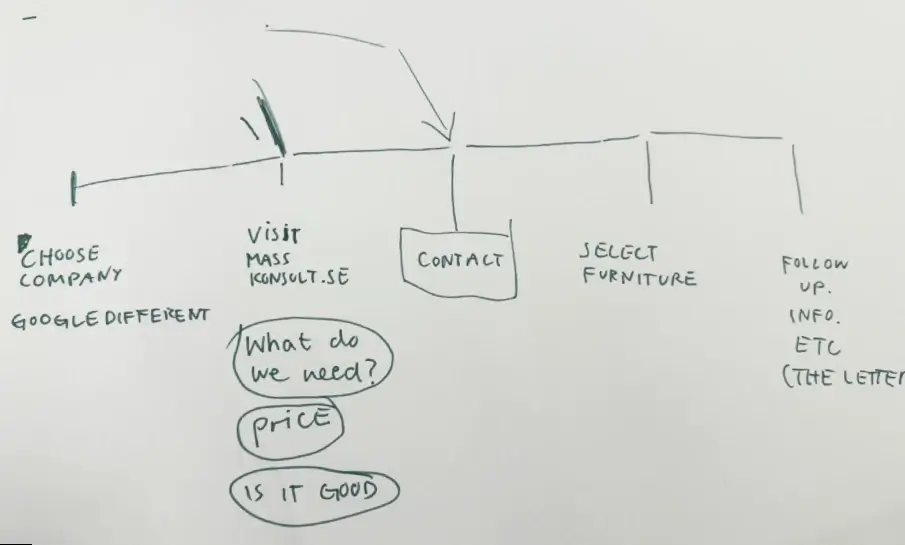 CHOOSE
COMPANY
GOOGLE DIFFERENT
Visit
MASS
KONSULT.SE
What do
we need?
PRICE
IS IT GOOD
CONTACT
SELECT
FURNITURE
FOLLOW
UP.
INFO.
ETC
(THE LETTER